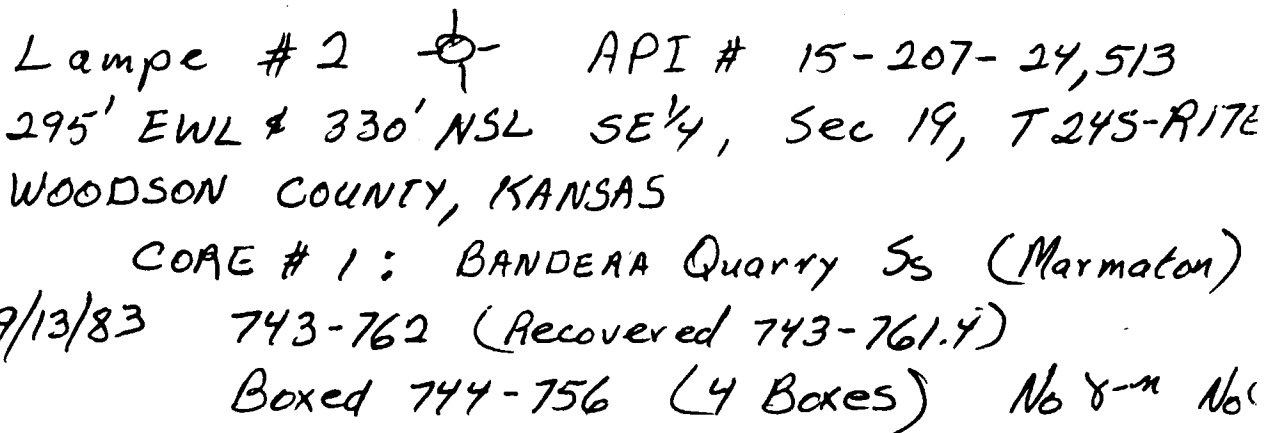 Lampe # 2 API # 15-207-24,513
295' EWL & 330' NSL SE 1/4, Sec 19, T24S-R17E
WOODSON COUNTY, KANSAS
CORE # 1 : BANDERA Quarry Ss (Marmaton)
9/13/83 743-762 (Recovered 743-761.4)
Boxed 744-756 (4 Boxes) No γ-n